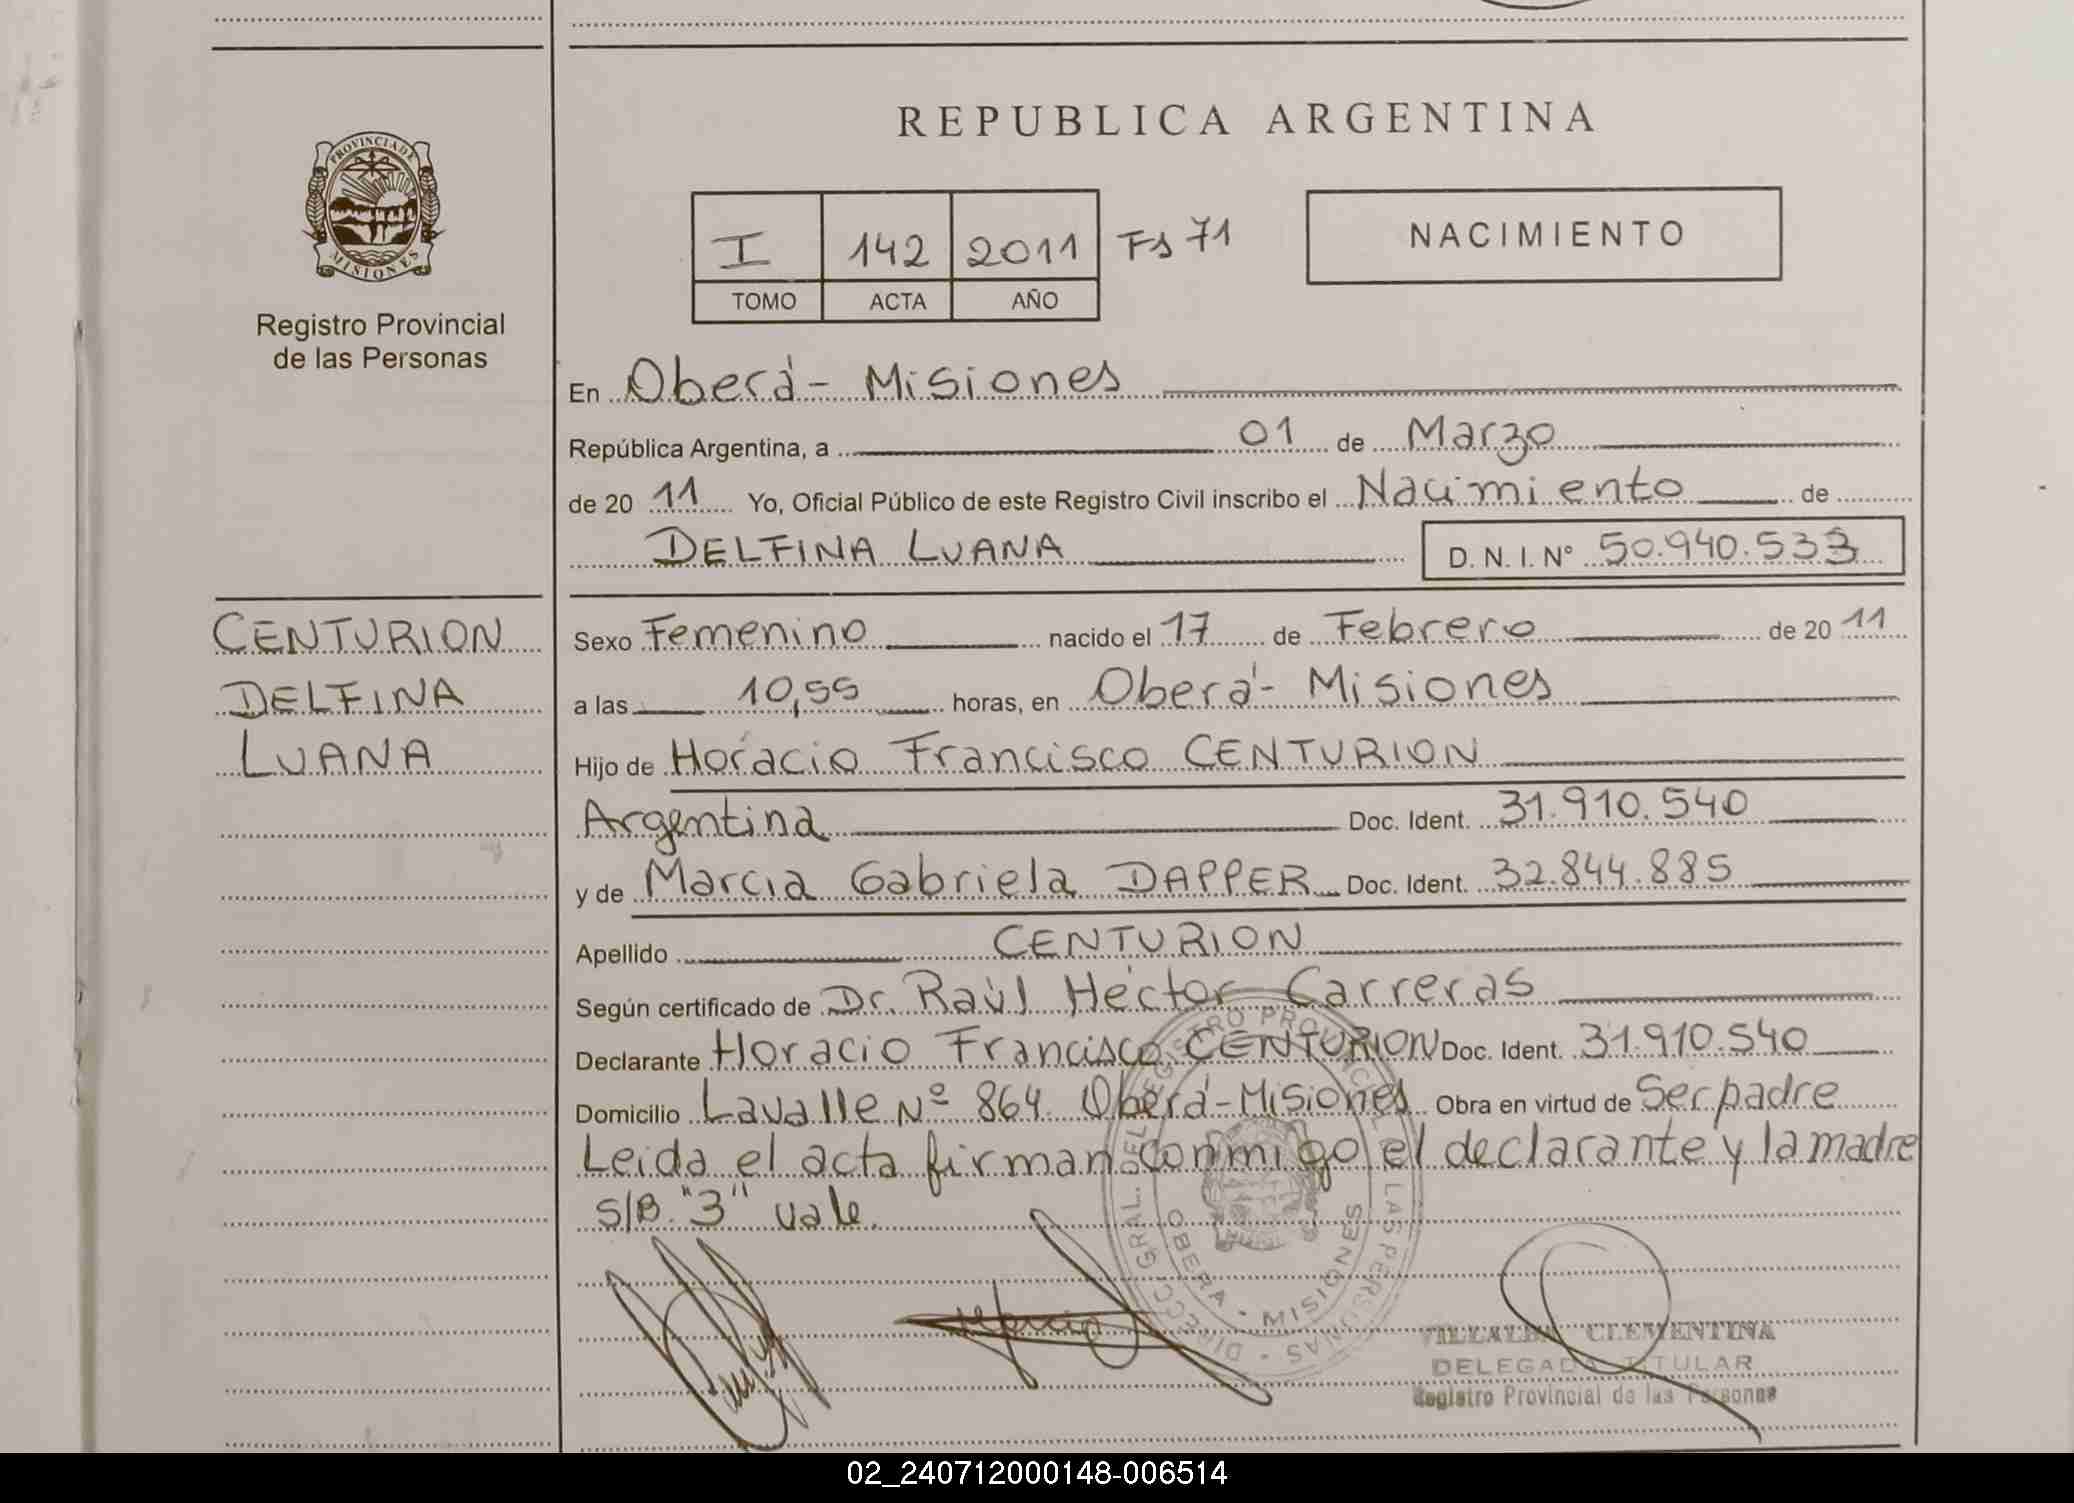 REPUBLICA ARGENTINA
PROVINCIA DE
MISIONES
Registro Provincial
de las Personas
I 142 2011 Fs 71
TOMO ACTA AÑO
NACIMIENTO
En Oberá - Misiones
República Argentina, a 01 de Marzo
de 20 11 Yo, Oficial Público de este Registro Civil inscribo el Nacimiento de
DELFINA LUANA D. N. I. Nº 50.940.533
CENTURION
DELFINA
LUANA
Sexo Femenino nacido el 17 de Febrero de 20 11
a las 10,55 horas, en Oberá - Misiones
Hijo de Horacio Francisco CENTURION
Argentina Doc. Ident. 31.910.540
y de Marcia Gabriela DAPPER Doc. Ident. 32.844.885
Apellido CENTURION
Según certificado de Dr. Raúl Héctor Carreras
Declarante Horacio Francisco CENTURION Doc. Ident. 31.910.540
Domicilio Lavalle Nº 864 Oberá - Misiones Obra en virtud de Ser padre
Leida el acta firman conmigo el declarante y la madre
S/B. "3" vale.
DIRECC. GRAL. DEL REGISTRO PROVINCIAL DE LAS PERSONAS
OBERA - MISIONES
VILLALBA CLEMENTINA
DELEGADA TITULAR
Registro Provincial de las Personas
02_240712000148-006514